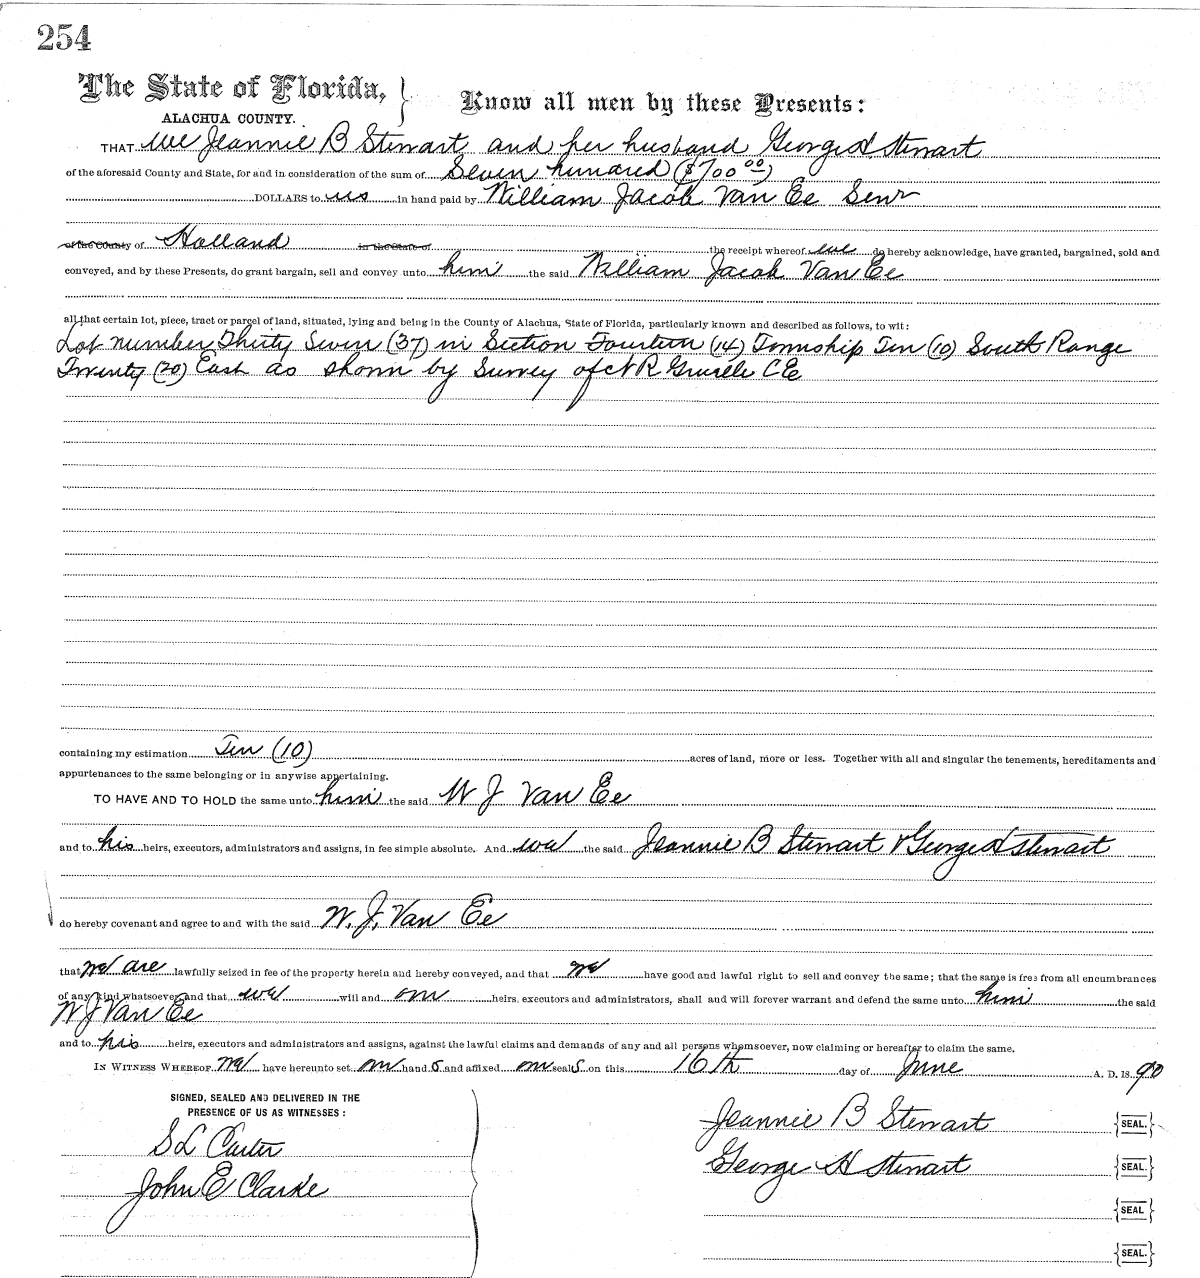 254
The State of Florida,
ALACHUA COUNTY.
Know all men by these Presents:
THAT we Jeannie B Stewart and her husband George H. Stewart
of the aforesaid County and State, for and in consideration of the sum of Seven hundred ($700 00)
DOLLARS to us in hand paid by William Jacob Van Ee Senr
of the County of Holland in the State of the receipt whereof we do hereby acknowledge, have granted, bargained, sold and
conveyed, and by these Presents, do grant bargain, sell and convey unto him the said William Jacob Van Ee
all that certain lot, piece, tract or parcel of land, situated, lying and being in the County of Alachua, State of Florida, particularly known and described as follows, to wit:
Lot number Thirty Seven (37) in Section Fourteen (14) Township Ten (10) South Range
Twenty (20) East as shown by Survey of N R C E
containing my estimation Ten (10) acres of land, more or less. Together with all and singular the tenements, hereditaments and
appurtenances to the same belonging or in anywise appertaining.
TO HAVE AND TO HOLD the same unto him the said W J Van Ee
and to his heirs, executors, administrators and assigns, in fee simple absolute. And we the said Jeannie B Stewart & George H Stewart
do hereby covenant and agree to and with the said W. J. Van Ee
that we are lawfully seized in fee of the property herein and hereby conveyed, and that we have good and lawful right to sell and convey the same; that the same is free from all encumbrances
of any kind whatsoever, and that we will and our heirs, executors and administrators, shall and will forever warrant and defend the same unto him the said
W J Van Ee
and to his heirs, executors and administrators and assigns, against the lawful claims and demands of any and all persons whomsoever, now claiming or hereafter to claim the same.
IN WITNESS WHEREOF we have hereunto set our hands and affixed our seals on this 16th day of June A. D. 18 90
SIGNED, SEALED AND DELIVERED IN THE
PRESENCE OF US AS WITNESSES:
S L Carter
John E Clarke
Jeannie B Stewart SEAL.
George H Stewart SEAL.
SEAL
SEAL.